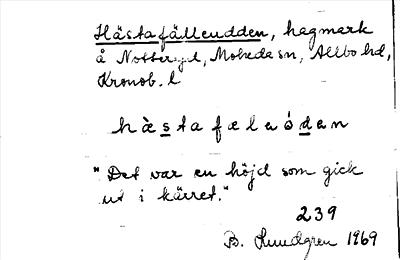 Hästafälleudden, hagmark
å Notteryd, Moheda sn, Allbo hd,
Kronob. l
hàstafæleúden
"Det var en höjd som gick
ut i kärret."
239
B. Lundgren 1969